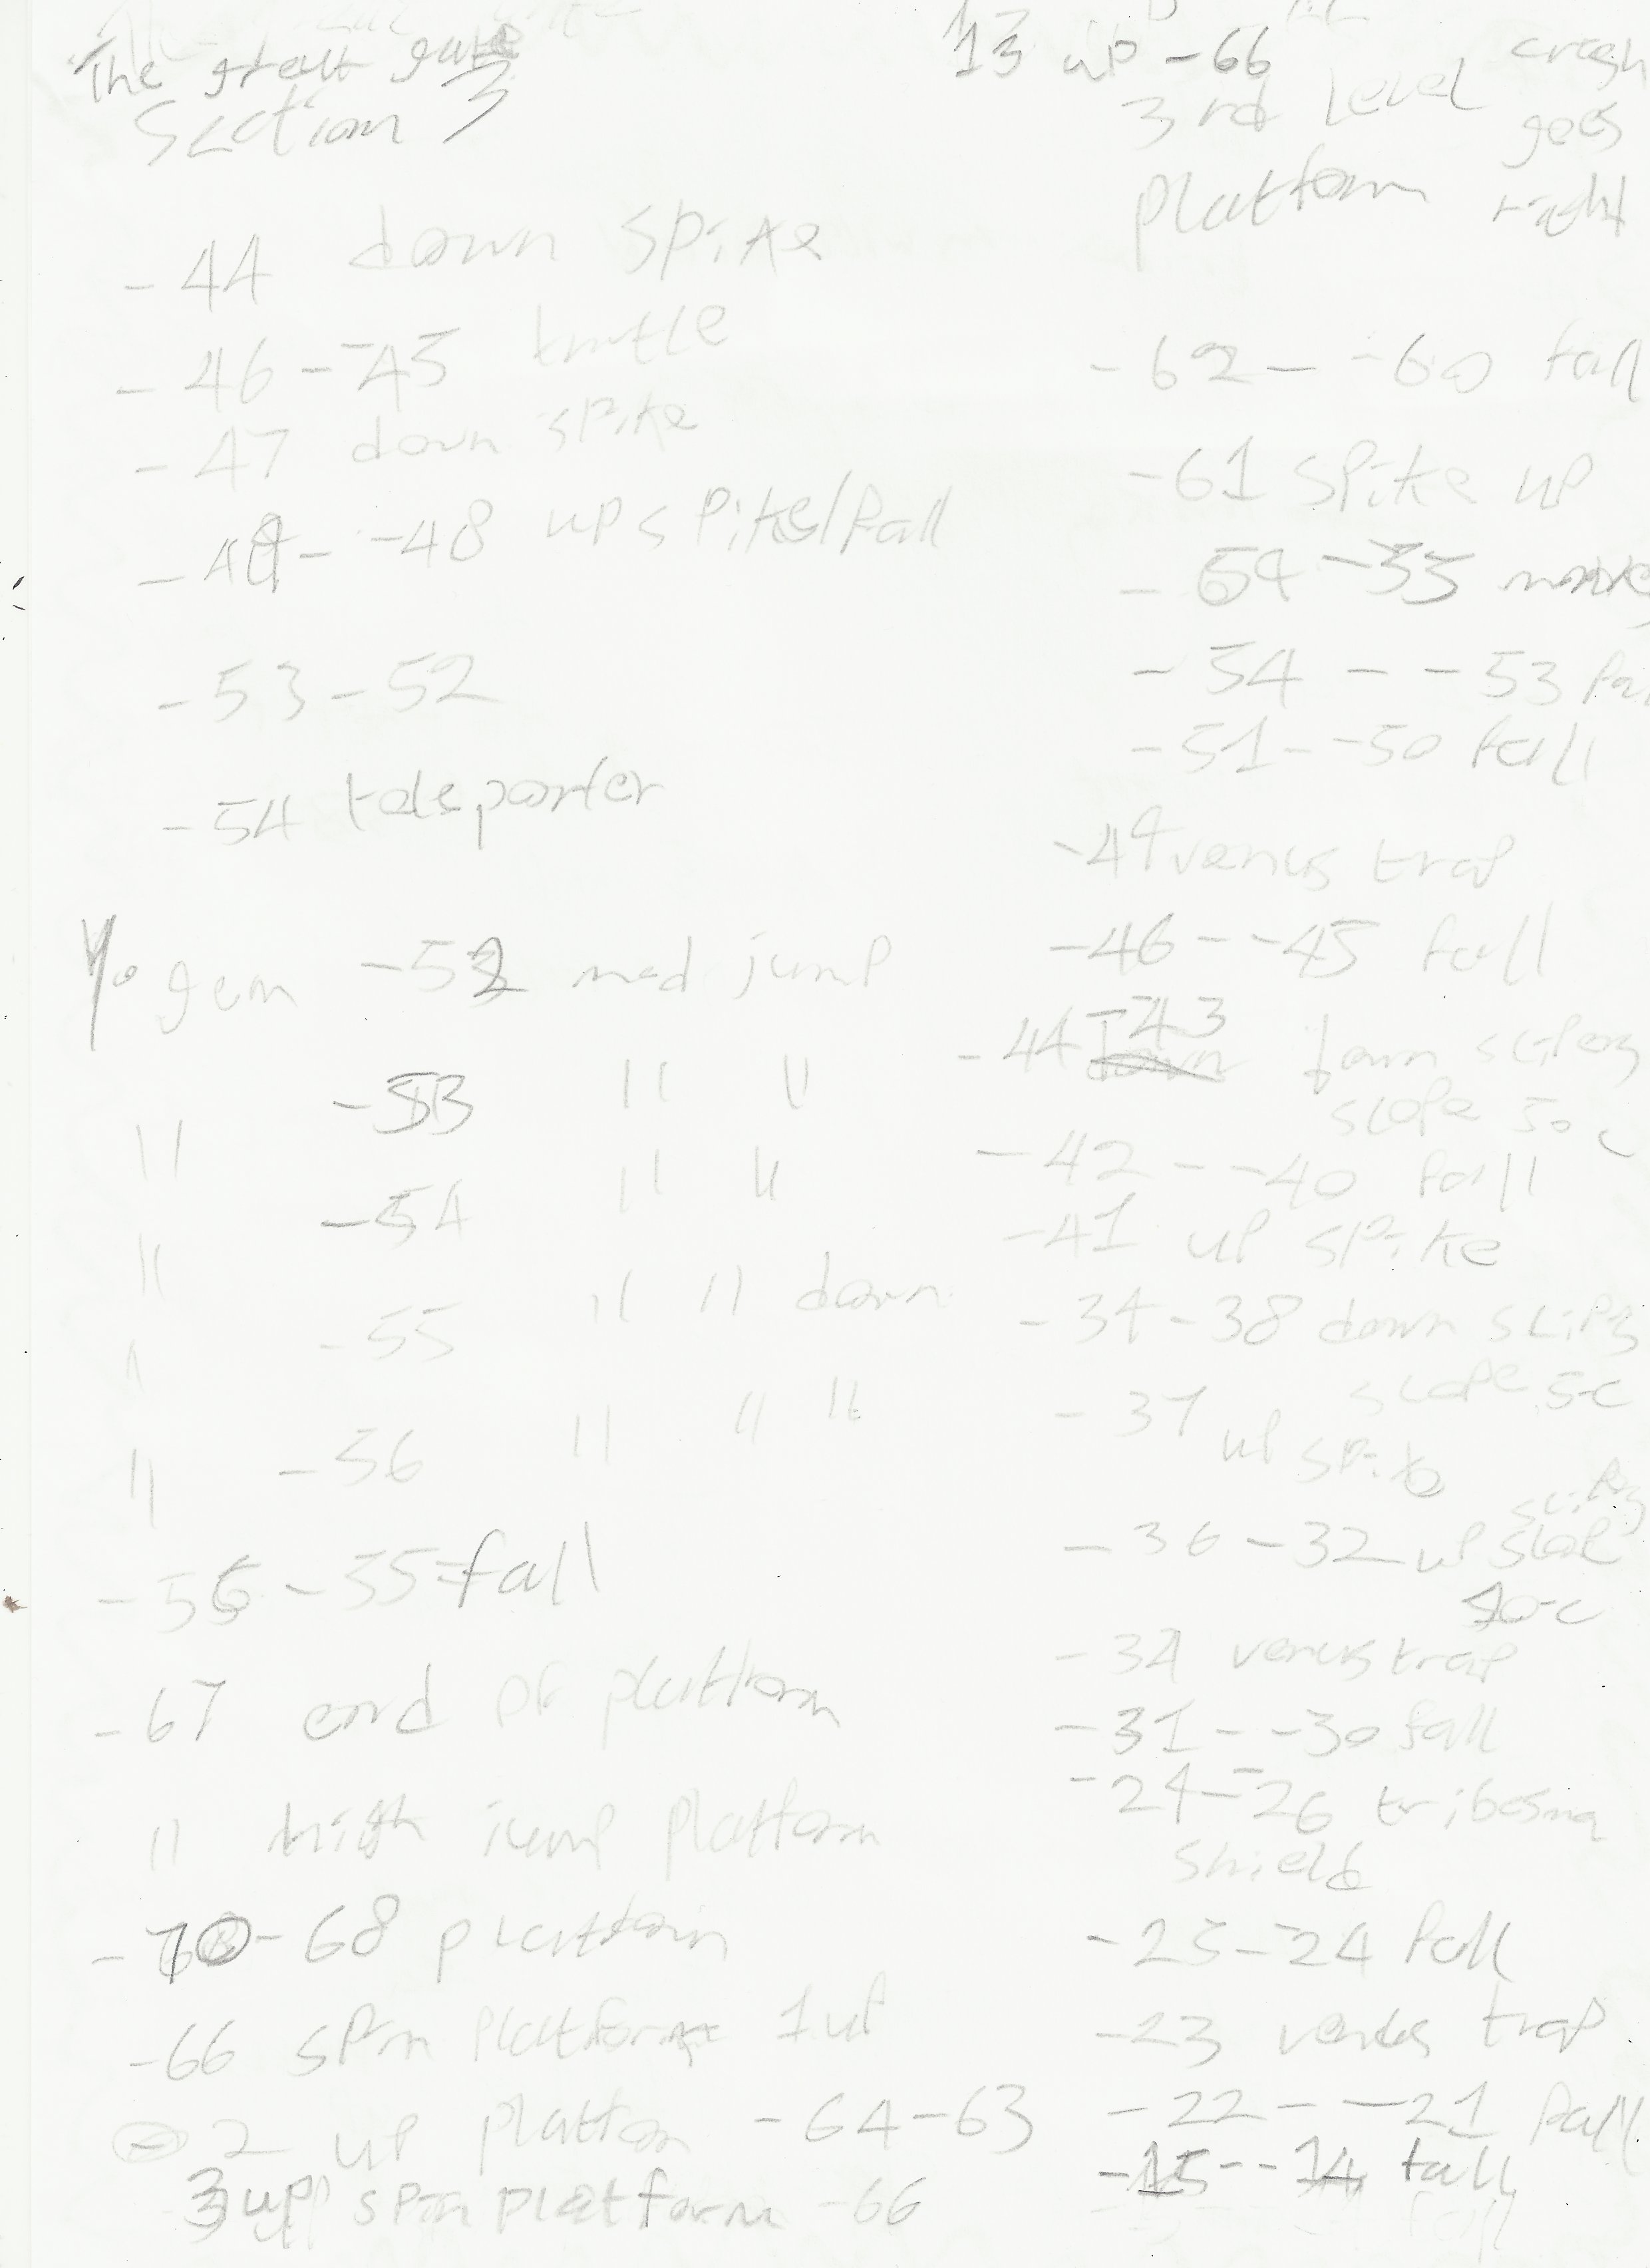 The great gate
Section 3
-44 down spike
-46 - -45 turtle
-47 down spike
-49 - -48 up spike/fall
-53 - 52
-54 teleporter
Yo gem -52 med jump
-53 " "
" -54 " "
" -55 " " down
" -56 " " "
-56 - 55 fall
-67 end of platform
" high jump platform
-70 - 68 platform
-66 spin platform 1up
2 up platform -64-63
3 up spin platform -66
13 up -66
3rd level crash
goes
platform right
-62 - -60 fall
-61 spike up
-54 - -53
-51 - -50 fall
-49 venus trap
-46 - -45 fall
-44 -43 down slipey
slope 50c
-42 - -40 fall
-41 up spike
-39 - 38 down slipey
slope 5c
-37 up spike
slipey
-36 - 32 up slope
40c
-34 venus trap
-31 - -30 fall
-29 - -26 tribesma
shield
-25 - 24 fall
-23 venus trap
-22 - -21 fall
-15 - -14 fall
fall